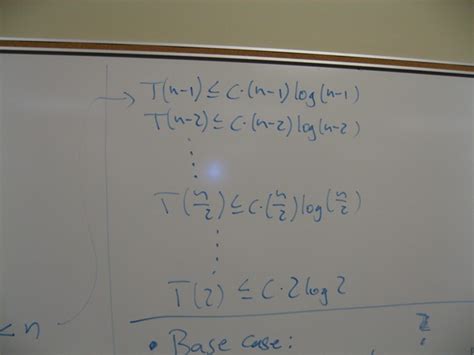 T(n-1) ≤ C·(n-1)log(n-1)
T(n-2) ≤ C·(n-2)log(n-2)
T(n/2) ≤ C·(n/2)log(n/2)
T(2) ≤ C·2log2
< n
• Base case: ?